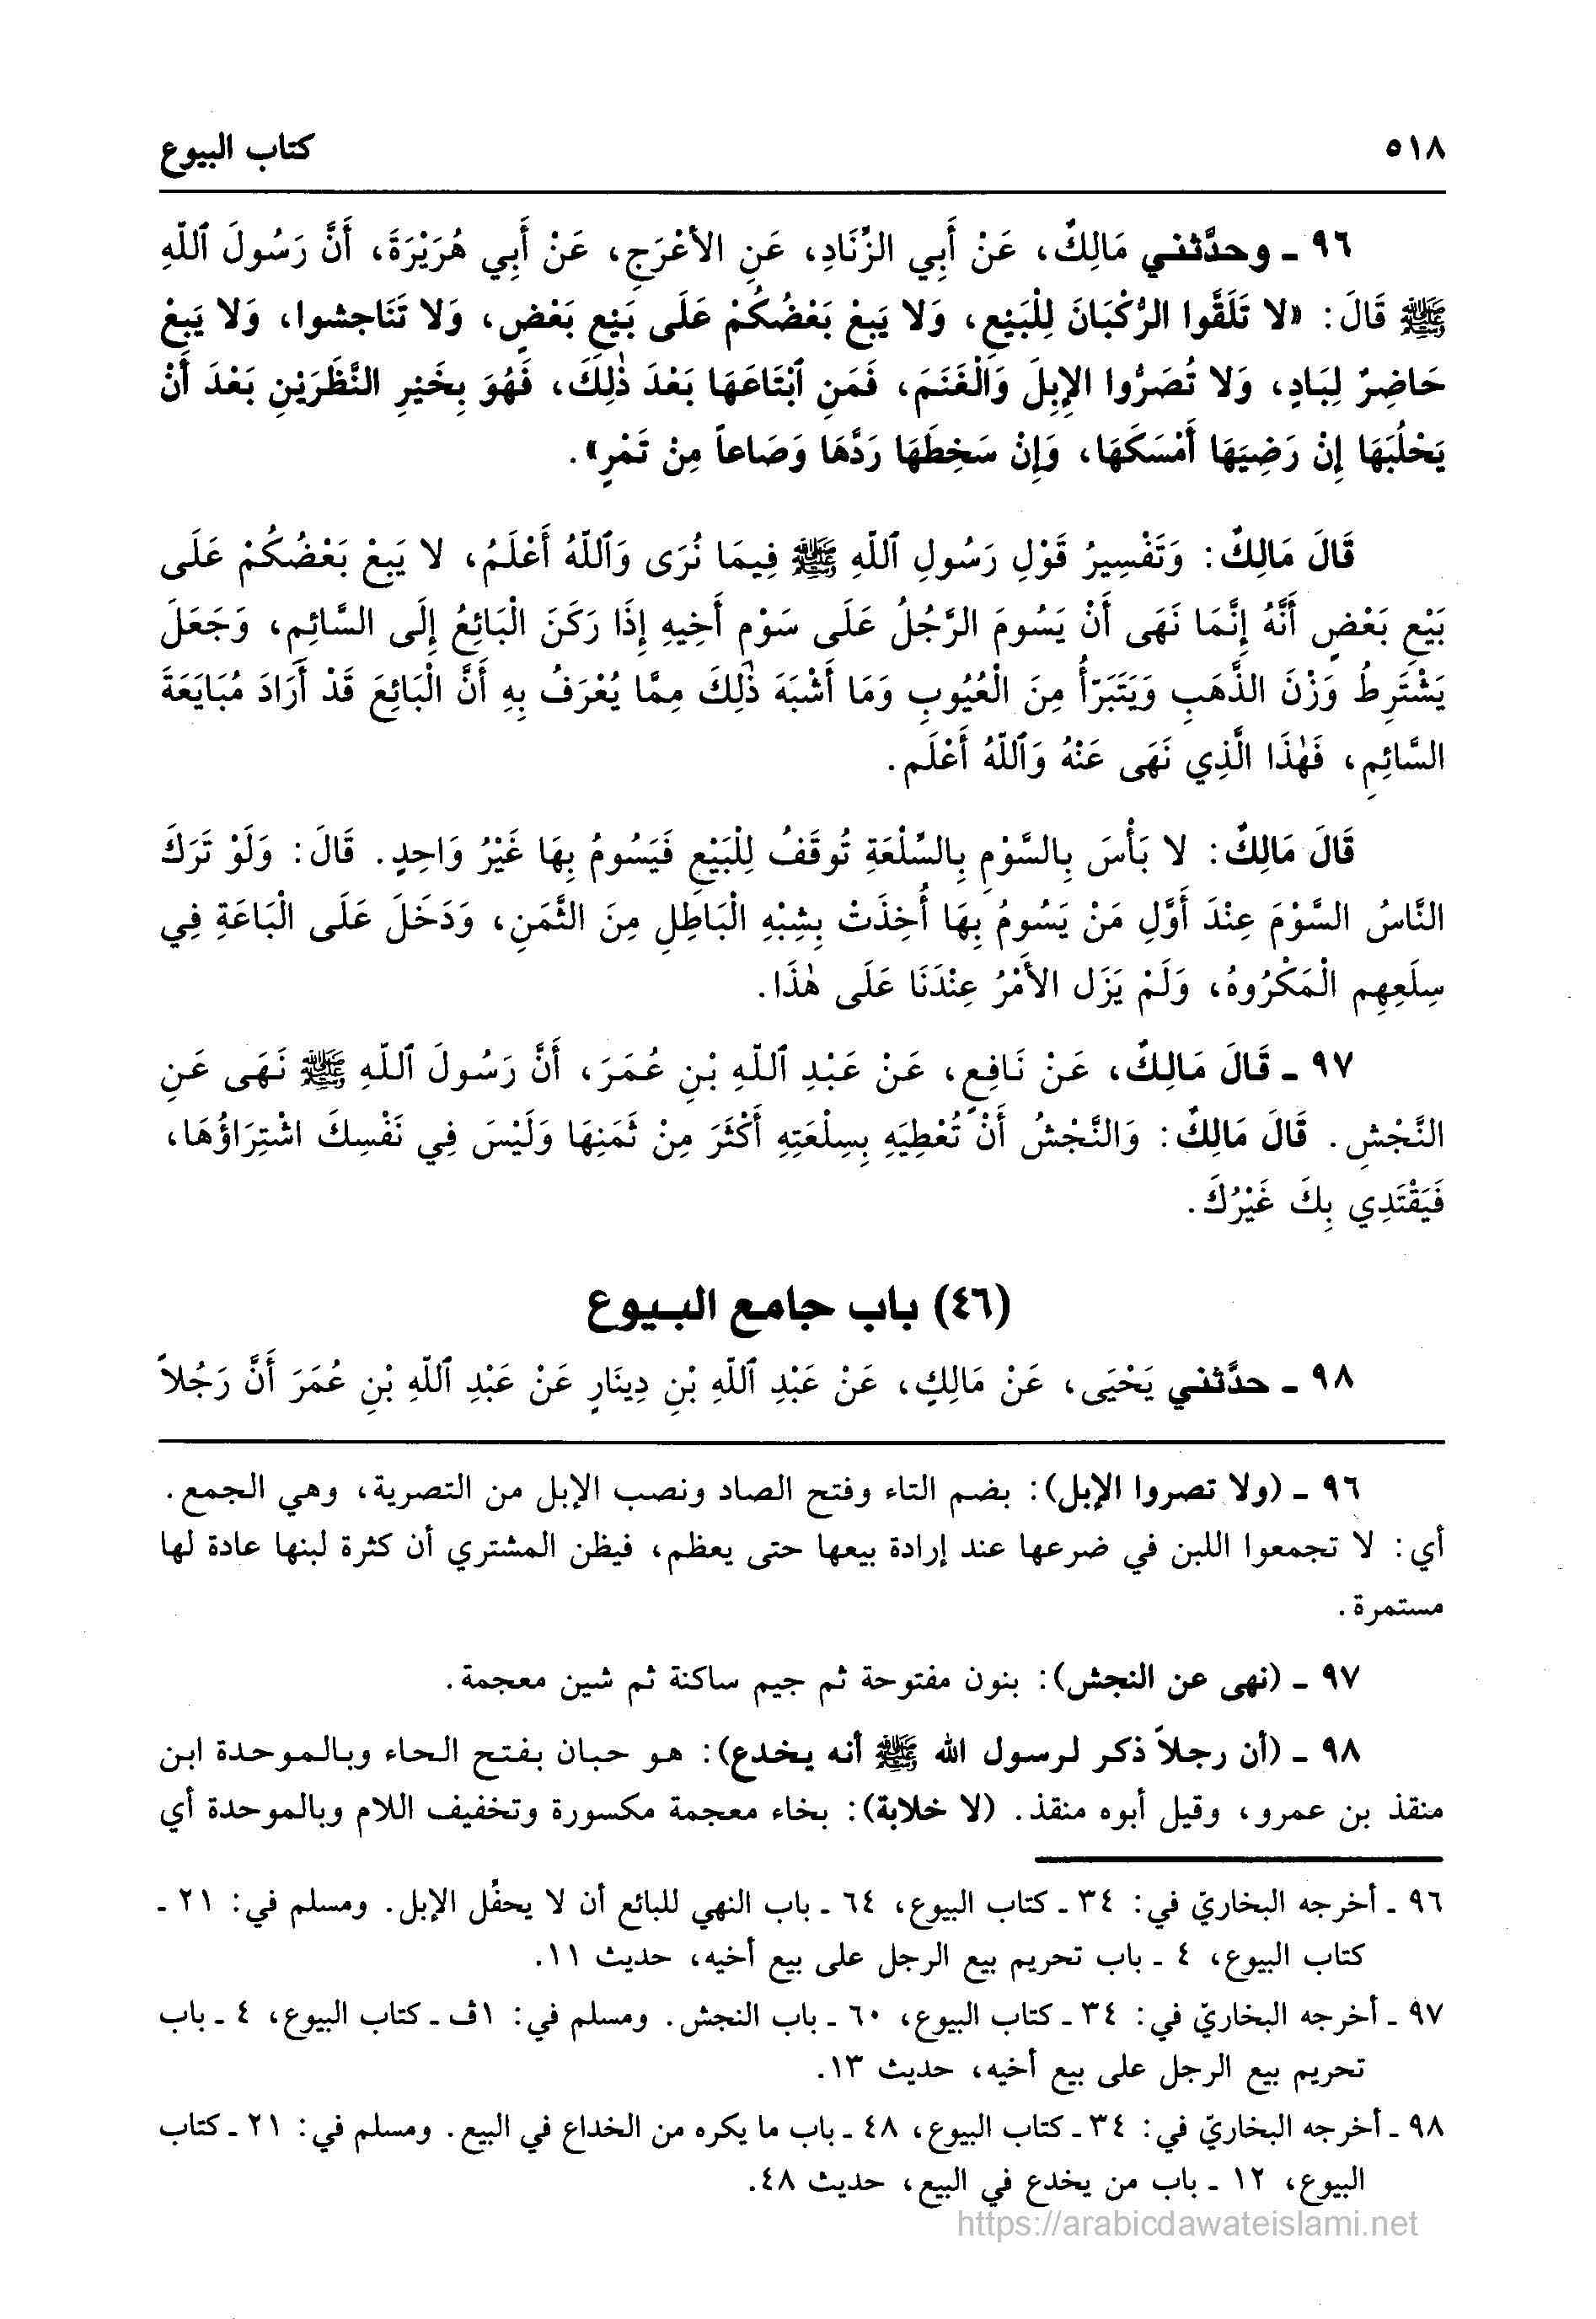 ٥١٨ كتاب البيوع
٩٦ ـ وحدَّثني مَالِكٌ، عَنْ أَبِي الزِّنَادِ، عَنِ الأَعْرَجِ، عَنْ أَبِي هُرَيْرَةَ، أَنَّ رَسُولَ ٱللّهِ
ﷺ قَالَ: «لا تَلَقَّوا الرُّكْبَانَ لِلْبَيْعِ، وَلا يَبِعْ بَعْضُكُمْ عَلَى بَيْعِ بَعْضٍ، وَلا تَنَاجشوا، وَلا يَبِعْ
حَاضِرٌ لِبَادٍ، وَلا تُصَرُّوا الإِبِلَ وَالْغَنَمَ، فَمَنِ ٱبْتَاعَهَا بَعْدَ ذٰلِكَ، فَهُوَ بِخَيْرِ النَّظَرَيْنِ بَعْدَ أَنْ
يَحْلُبَهَا إِنْ رَضِيَهَا أَمْسَكَهَا، وَإِنْ سَخِطَهَا رَدَّهَا وَصَاعاً مِنْ تَمْرٍ».
قَالَ مَالِكٌ: وَتَفْسِيرُ قَوْلِ رَسُولِ ٱللّهِ ﷺ فِيمَا نُرَى وَٱللّهُ أَعْلَمُ، لا يَبِعْ بَعْضُكُمْ عَلَى
بَيْعِ بَعْضٍ أَنَّهُ إِنَّمَا نَهَى أَنْ يَسُومَ الرَّجُلُ عَلَى سَوْمِ أَخِيهِ إِذَا رَكَنَ الْبَائِعُ إِلَى السَّائِمِ، وَجَعَلَ
يَشْتَرِطُ وَزْنَ الذَّهَبِ وَيَتَبَرّأُ مِنَ الْعُيُوبِ وَمَا أَشْبَهَ ذٰلِكَ مِمَّا يُعْرَفُ بِهِ أَنَّ الْبَائِعَ قَدْ أَرَادَ مُبَايَعَةَ
السَّائِمِ، فَهٰذَا الَّذِي نَهَى عَنْهُ وَٱللّهُ أَعْلَم.
قَالَ مَالِكٌ: لا بَأْسَ بِالسَّوْمِ بِالسِّلْعَةِ تُوقَفُ لِلْبَيْعِ فَيَسُومُ بِهَا غَيْرُ وَاحِدٍ. قَالَ: وَلَوْ تَرَكَ
النَّاسُ السَّوْمَ عِنْدَ أَوَّلِ مَنْ يَسُومُ بِهَا أُخِذَتْ بِشِبْهِ الْبَاطِلِ مِنَ الثَّمَنِ، وَدَخَلَ عَلَى الْبَاعَةِ فِي
سِلَعِهِم الْمَكْرُوهُ، وَلَمْ يَزَل الأَمْرُ عِنْدَنَا عَلَى هٰذَا.
٩٧ ـ قَالَ مَالِكٌ، عَنْ نَافِعٍ، عَنْ عَبْدِ ٱللّهِ بْنِ عُمَرَ، أَنَّ رَسُولَ ٱللّهِ ﷺ نَهَى عَنِ
النَّجْشِ. قَالَ مَالِكٌ: وَالنَّجْشُ أَنْ تُعْطِيَهِ بِسِلْعَتِهِ أَكْثَرَ مِنْ ثَمَنِهَا وَلَيْسَ فِي نَفْسِكَ اشْتِرَاؤُهَا،
فَيَقْتَدِي بِكَ غَيْرُكَ.
(٤٦) باب جامع البيوع
٩٨ ـ حدَّثني يَحْيَى، عَنْ مَالِكٍ، عَنْ عَبْدِ ٱللّهِ بْنِ دِينَارٍ عَنْ عَبْدِ ٱللّهِ بْنِ عُمَرَ أَنَّ رَجُلاً
٩٦ ـ (ولا تصروا الإبل): بضم التاء وفتح الصاد ونصب الإبل من التصرية، وهي الجمع.
أي: لا تجمعوا اللبن في ضرعها عند إرادة بيعها حتى يعظم، فيظن المشتري أن كثرة لبنها عادة لها
مستمرة.
٩٧ ـ (نهى عن النجش): بنون مفتوحة ثم جيم ساكنة ثم شين معجمة.
٩٨ ـ (أن رجلاً ذكر لرسول الله ﷺ أنه يخدع): هو حبان بفتح الحاء وبالموحدة ابن
منقذ بن عمرو، وقيل أبوه منقذ. (لا خلابة): بخاء معجمة مكسورة وتخفيف اللام وبالموحدة أي
٩٦ ـ أخرجه البخاريّ في: ٣٤ ـ كتاب البيوع، ٦٤ ـ باب النهي للبائع أن لا يحفِّل الإبل. ومسلم في: ٢١ ـ
كتاب البيوع، ٤ ـ باب تحريم بيع الرجل على بيع أخيه، حديث ١١.
٩٧ ـ أخرجه البخاريّ في: ٣٤ ـ كتاب البيوع، ٦٠ ـ باب النجش. ومسلم في: ١ف ـ كتاب البيوع، ٤ ـ باب
تحريم بيع الرجل على بيع أخيه، حديث ١٣.
٩٨ ـ أخرجه البخاريّ في: ٣٤ ـ كتاب البيوع، ٤٨ ـ باب ما يكره من الخداع في البيع. ومسلم في: ٢١ ـ كتاب
البيوع، ١٢ ـ باب من يخدع في البيع، حديث ٤٨.
https://arabicdawateislami.net